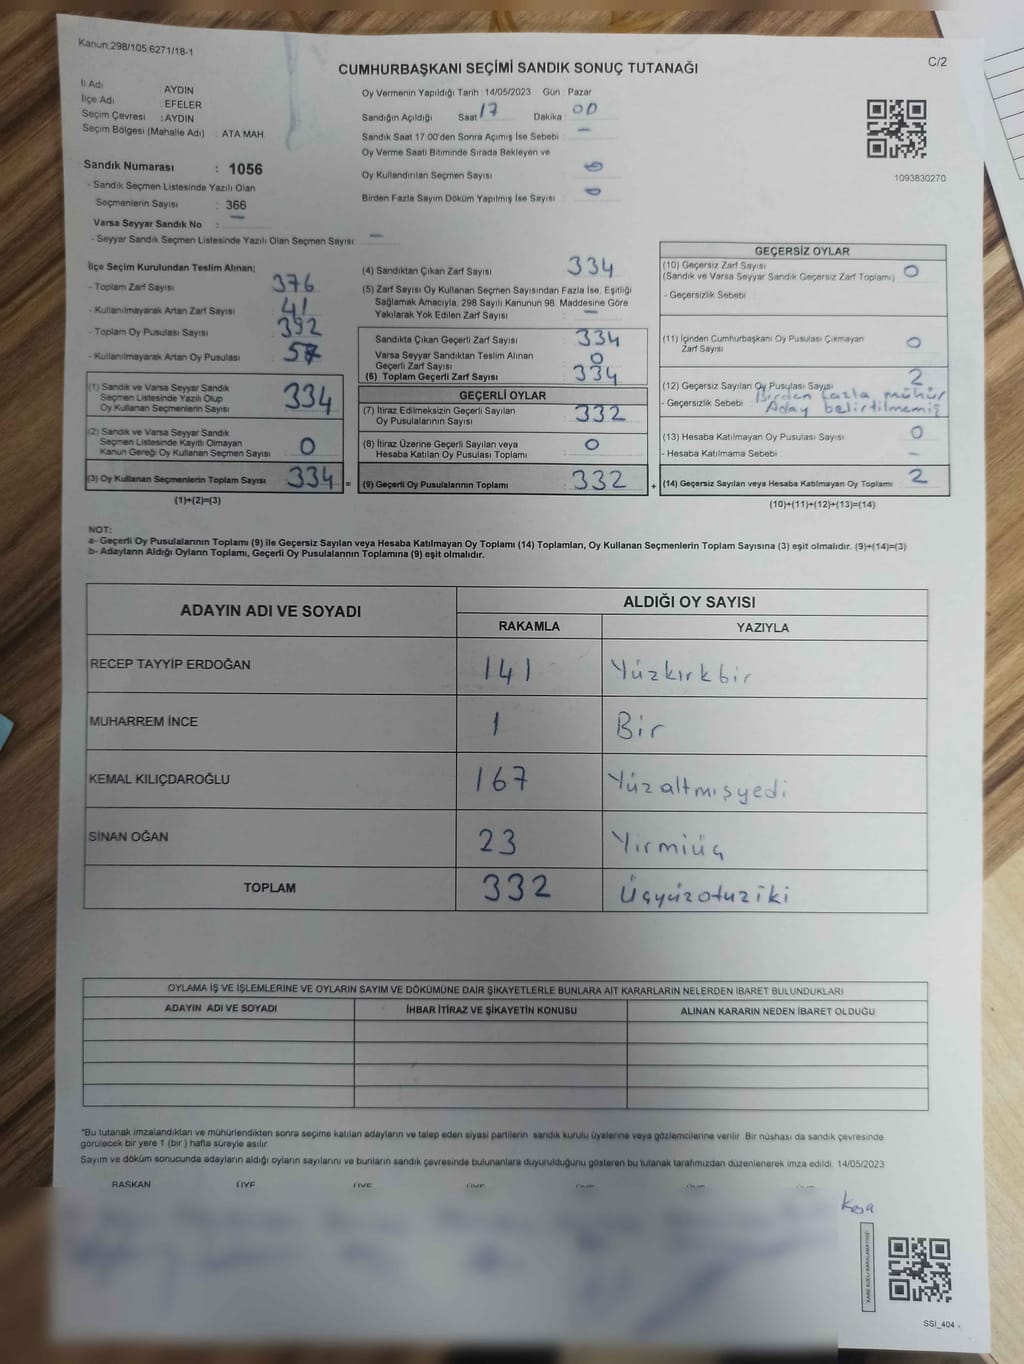 Kanun;298/105,6271/18-1
CUMHURBAŞKANI SEÇİMİ SANDIK SONUÇ TUTANAĞI
C/2
İl Adı : AYDIN
İlçe Adı : EFELER
Seçim Çevresi : AYDIN
Seçim Bölgesi (Mahalle Adı) : ATA MAH
Sandık Numarası : 1056
- Sandık Seçmen Listesinde Yazılı Olan
Seçmenlerin Sayısı : 366
Varsa Seyyar Sandık No : –
- Seyyar Sandık Seçmen Listesinde Yazılı Olan Seçmen Sayısı: –
Oy Vermenin Yapıldığı Tarih : 14/05/2023 Gün : Pazar
Sandığın Açıldığı Saat 17 Dakika : 00
Sandık Saat 17:00'den Sonra Açımış İse Sebebi : –
Oy Verme Saati Bitiminde Sırada Bekleyen ve
Oy Kullandırılan Seçmen Sayısı : 0
Birden Fazla Sayım Döküm Yapılmış İse Sayısı : 0
1093830270
İlçe Seçim Kurulundan Teslim Alınan;
- Toplam Zarf Sayısı 376
- Kullanılmayarak Artan Zarf Sayısı 41
- Toplam Oy Pusulası Sayısı 392
- Kullanılmayarak Artan Oy Pusulası
(1) Sandık ve Varsa Seyyar Sandık
Seçmen Listesinde Yazılı Olup
Oy Kullanan Seçmenlerin Sayısı 334
(2) Sandık ve Varsa Seyyar Sandık
Seçmen Listesinde Kayıtlı Olmayan
Kanun Gereği Oy Kullanan Seçmen Sayısı 0
(3) Oy Kullanan Seçmenlerin Toplam Sayısı 334 =
(1)+(2)=(3)
(4) Sandıktan Çıkan Zarf Sayısı 334
(5) Zarf Sayısı Oy Kullanan Seçmen Sayısından Fazla İse, Eşitliği
Sağlamak Amacıyla, 298 Sayılı Kanunun 98. Maddesine Göre
Yakılarak Yok Edilen Zarf Sayısı : –
Sandıkta Çıkan Geçerli Zarf Sayısı 334
Varsa Seyyar Sandıktan Teslim Alınan
Geçerli Zarf Sayısı 0
(6) Toplam Geçerli Zarf Sayısı 334
GEÇERLİ OYLAR
(7) İtiraz Edilmeksizin Geçerli Sayılan
Oy Pusulalarının Sayısı 332
(8) İtiraz Üzerine Geçerli Sayılan veya
Hesaba Katılan Oy Pusulası Toplamı 0
(9) Geçerli Oy Pusulalarının Toplamı 332 +
GEÇERSİZ OYLAR
(10) Geçersiz Zarf Sayısı 0
(Sandık ve Varsa Seyyar Sandık Geçersiz Zarf Toplamı)
- Geçersizlik Sebebi
(11) İçinden Cumhurbaşkanı Oy Pusulası Çıkmayan
Zarf Sayısı 0
(12) Geçersiz Sayılan Oy Pusulası Sayısı 2
- Geçersizlik Sebebi : Birden fazla mühür
Aday belirtilmemiş
(13) Hesaba Katılmayan Oy Pusulası Sayısı 0
- Hesaba Katılmama Sebebi : –
(14) Geçersiz Sayılan veya Hesaba Katılmayan Oy Toplamı 2
(10)+(11)+(12)+(13)=(14)
NOT:
a- Geçerli Oy Pusulalarının Toplamı (9) ile Geçersiz Sayılan veya Hesaba Katılmayan Oy Toplamı (14) Toplamları, Oy Kullanan Seçmenlerin Toplam Sayısına (3) eşit olmalıdır. (9)+(14)=(3)
b- Adayların Aldığı Oyların Toplamı, Geçerli Oy Pusulalarının Toplamına (9) eşit olmalıdır.
ADAYIN ADI VE SOYADI
ALDIĞI OY SAYISI
RAKAMLA YAZIYLA
RECEP TAYYİP ERDOĞAN 141 Yüzkırkbir
MUHARREM İNCE 1 Bir
KEMAL KILIÇDAROĞLU 167 Yüzaltmışyedi
SİNAN OĞAN 23 Yirmiüç
TOPLAM 332 Üçyüzotuziki
OYLAMA İŞ VE İŞLEMLERİNE VE OYLARIN SAYIM VE DÖKÜMÜNE DAİR ŞİKAYETLERLE BUNLARA AİT KARARLARIN NELERDEN İBARET BULUNDUKLARI
ADAYIN ADI VE SOYADI İHBAR İTİRAZ VE ŞİKAYETİN KONUSU ALINAN KARARIN NEDEN İBARET OLDUĞU
*Bu tutanak imzalandıktan ve mühürlendikten sonra seçime katılan adayların ve talep eden siyasi partilerin sandık kurulu üyelerine veya gözlemcilerine verilir. Bir nüshası da sandık çevresinde
görülecek bir yere 1 (bir) hafta süreyle asılır.
Sayım ve döküm sonucunda adayların aldığı oyların sayılarını ve bunların sandık çevresinde bulunanlara duyurulduğunu gösteren bu tutanak tarafımızdan düzenlenerek imza edildi. 14/05/2023
BAŞKAN ÜYE ÜYE ÜYE ÜYE ÜYE ÜYE
SSI_404 -